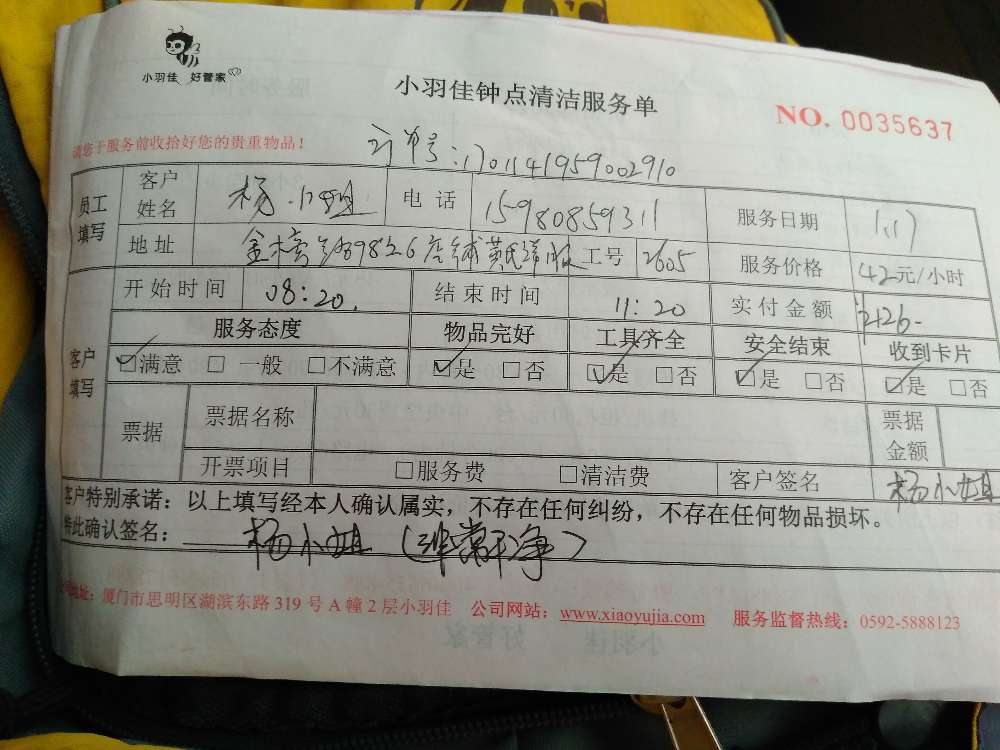 小羽佳 好管家
小羽佳钟点清洁服务单
NO. 0035637
请您于服务前收拾好您的贵重物品！
订单号：1701141959002910
员工填写
客户姓名 杨小姐 电话 15980859311 服务日期 1.17
地址 金榜 9826店铺 工号 2605 服务价格 42元/小时
客户填写
开始时间 08:20. 结束时间 11:20 实付金额 126-
服务态度 物品完好 工具齐全 安全结束 收到卡片
☑满意 □一般 □不满意 ☑是 □否 ☑是 □否 ☑是 □否 ☑是 □否
票据 票据名称 票据金额
开票项目 □服务费 □清洁费 客户签名 杨小姐
客户特别承诺：以上填写经本人确认属实，不存在任何纠纷，不存在任何物品损坏。
特此确认签名： 杨小姐（非常干净）
公司地址：厦门市思明区湖滨东路 319 号 A 幢 2 层小羽佳 公司网站：www.xiaoyujia.com 服务监督热线：0592-5888123